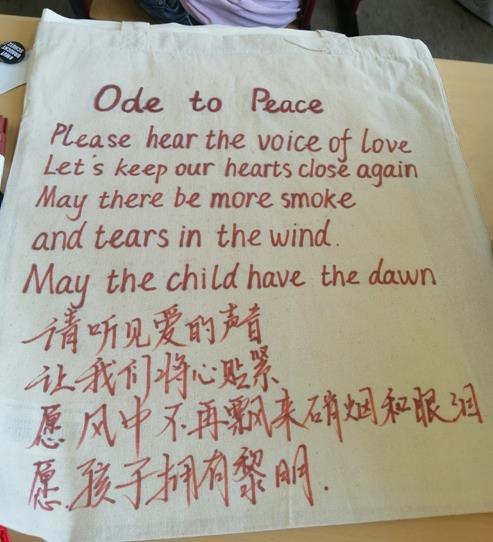 Ode to Peace
Please hear the voice of love
Let's keep our hearts close again
May there be more smoke
and tears in the wind.
May the child have the dawn
请听见爱的声音
让我们将心贴紧
愿风中不再飘来硝烟和眼泪
愿孩子拥有黎明.